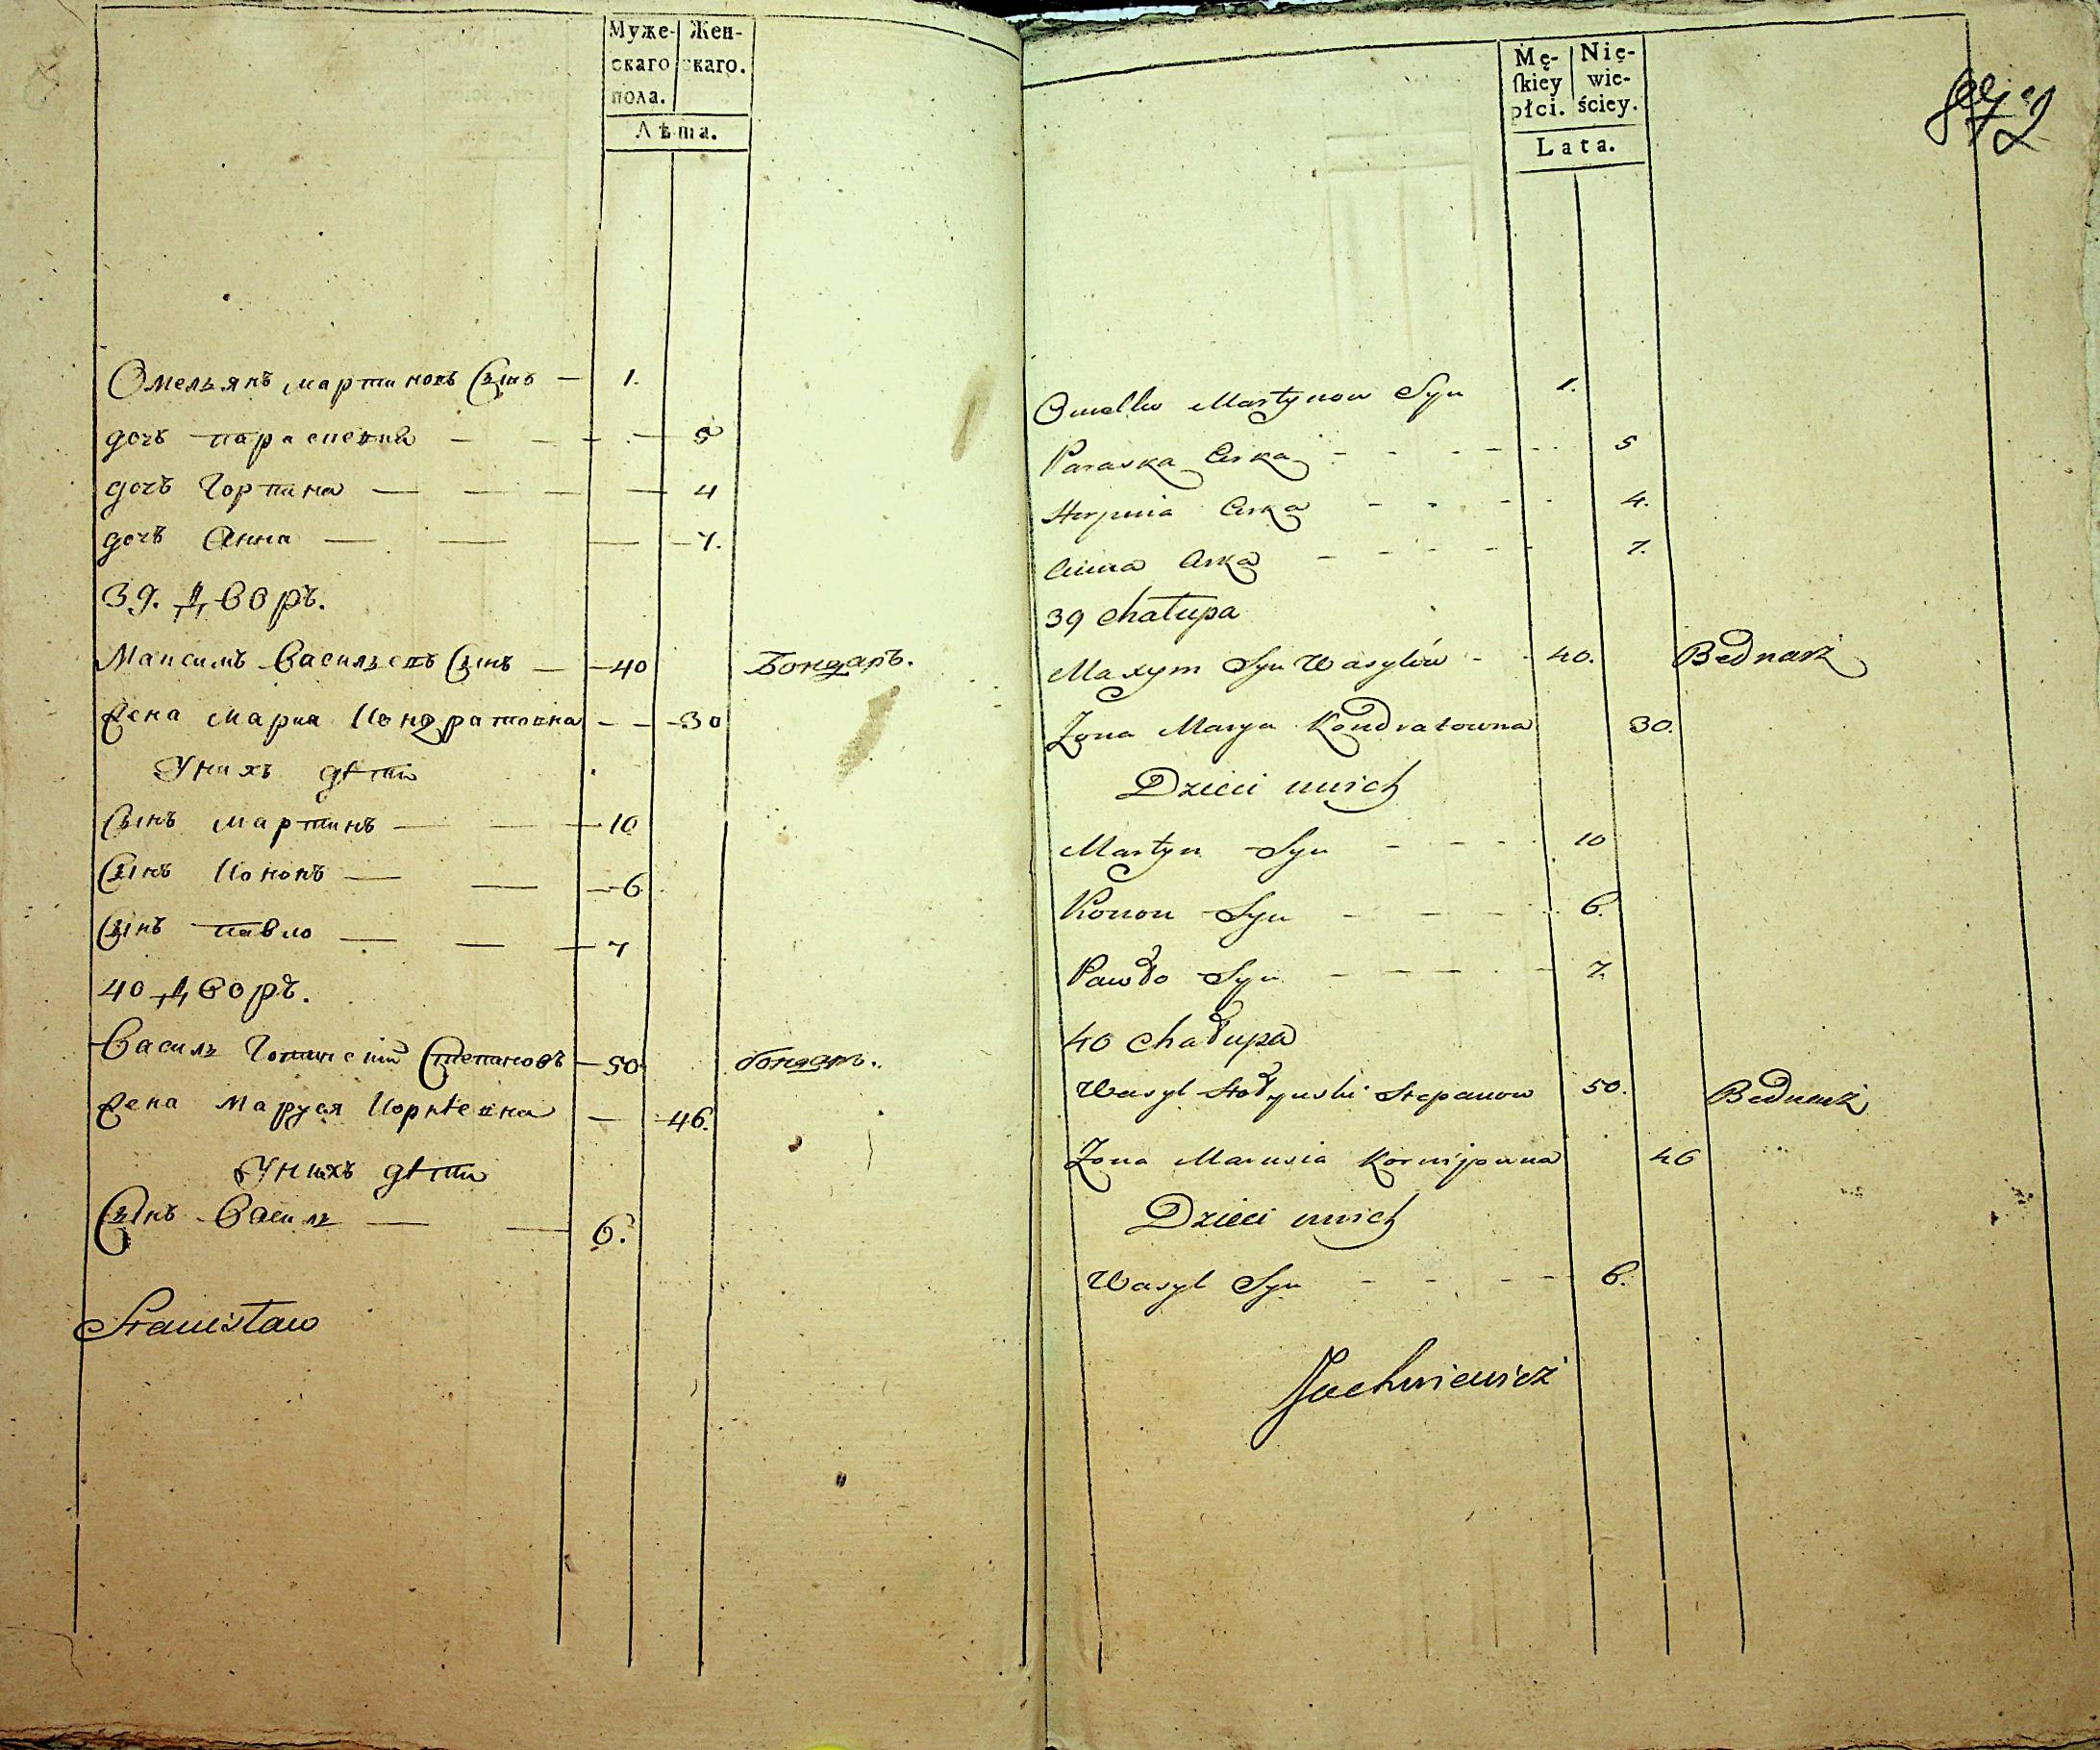 Муже- Жен-
скаго скаго.
пола.
Лѣта.
Омельянъ мартиновъ Сынъ — 1.
дочъ параскевия — — 5
дочъ Горпина — — — 4
дочъ Анна — — — 7.
39. Дворъ.
Максимъ Васильевъ Сынъ — 40 Бондаръ.
Жена Мария Кондратовна — — 30
Унихъ дѣти
Сынъ мартинъ — — 10
Сынъ Кононъ — — 6
Сынъ павло — — 7
40 Дворъ.
Василь Степановъ — 50 бондаръ.
Жена Маруся Корнѣевна — 46.
Унихъ дѣти
Сынъ Василь — — 6.
Stanisław
Mę- Nię-
ſkiey wie-
płci. ściey.
Lata.
Omelko Martynow Syn 1.
Paraska Crka - - - - 5
Horpina Crka - - - 4.
Anna Crka - - - - 7.
39 Chałupa
Maxym Syn Wasylów - - 40. Bednarż
Zona Marya Kondratowna 30.
Dzieci unich
Martyn Syn - - - 10
Konon Syn - - - 6.
Pawło Syn - - - - 7.
40 Chałupa
Wasyl Hołyński Stepanow 50. Bednarż
Zona Marusia Kornijowna 46
Dzieci unich
Wasyl Syn - - - - 6.